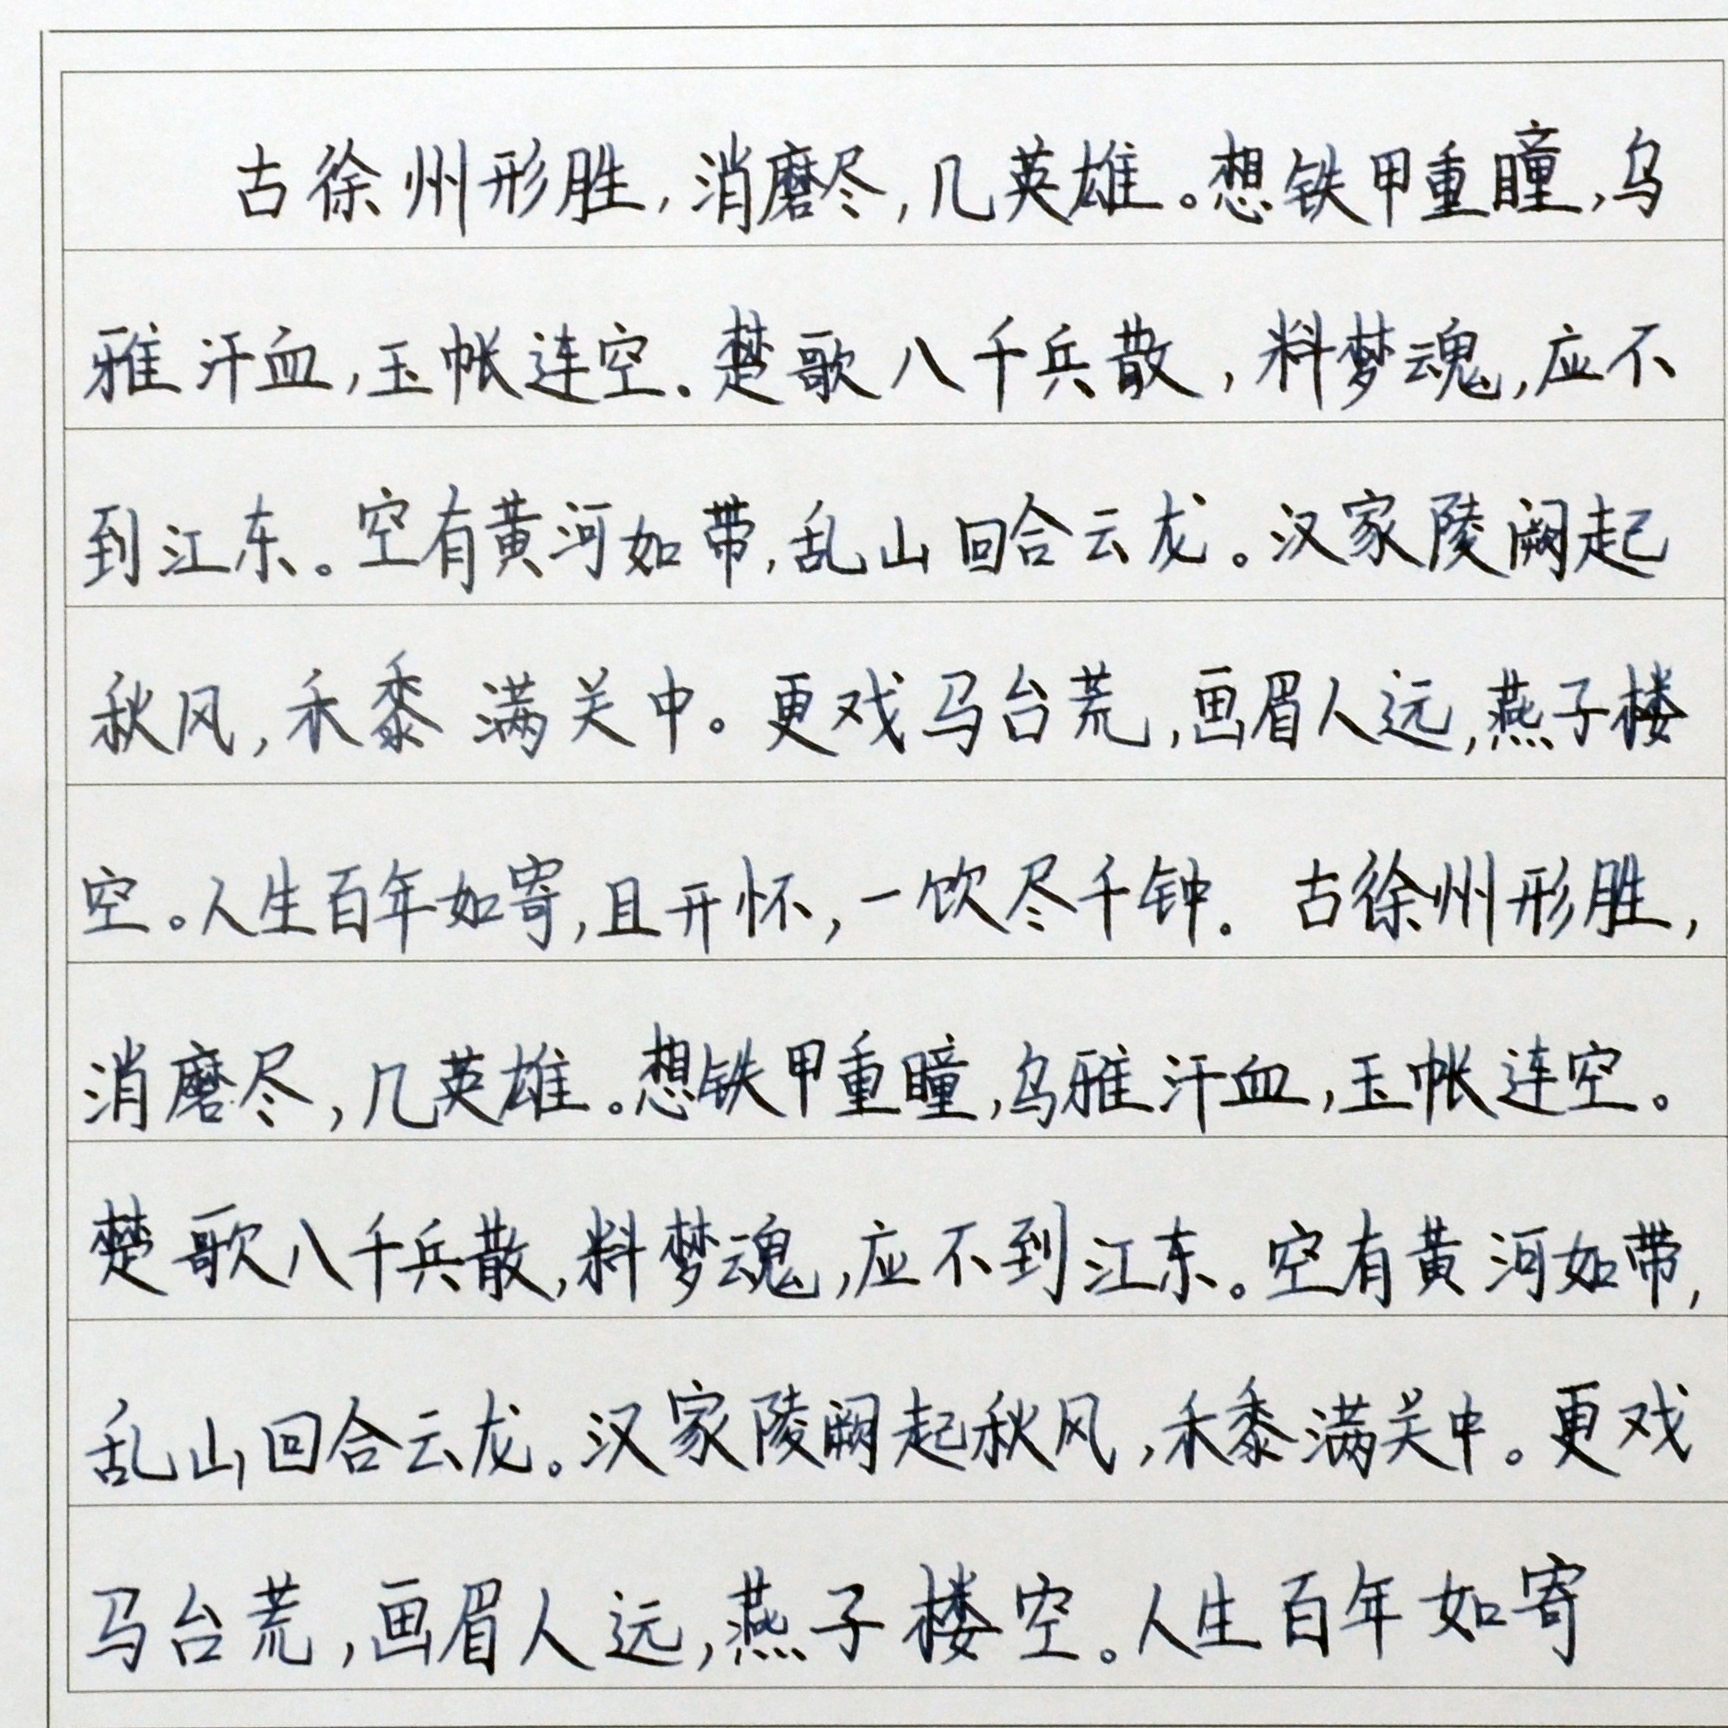 古徐州形胜,消磨尽,几英雄。想铁甲重瞳,乌
雅汗血,玉帐连空。楚歌八千兵散,料梦魂,应不
到江东。空有黄河如带,乱山回合云龙。汉家陵阙起
秋风,禾黍满关中。更戏马台荒,画眉人远,燕子楼
空。人生百年如寄,且开怀,一饮尽千钟. 古徐州形胜,
消磨尽,几英雄。想铁甲重瞳,乌雅汗血,玉帐连空。
楚歌八千兵散,料梦魂,应不到江东。空有黄河如带,
乱山回合云龙。汉家陵阙起秋风,禾黍满关中。更戏
马台荒,画眉人远,燕子楼空。人生百年如寄